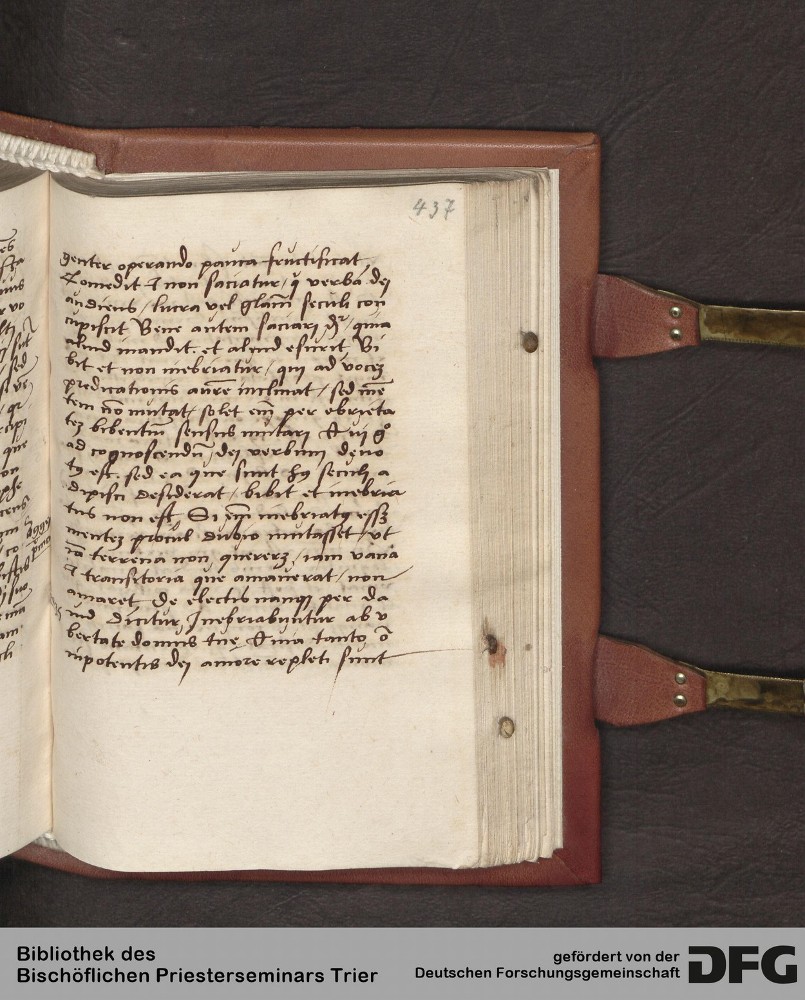 437
genter operando pauca fructificat
Comedit & non saciatur / q verba dei
audiens / lucra vel glam seculi con
cupiscit Bene autem saciari dr / quia
aliud mandit. et aliud esurit Bi
bit et non inebriatur / qui ad vocez
predicationis aure inclinat / sed me
tem no mutat / solet em per ebrieta
tez bibentiu sensus mutari Qui g°
ad cognoscendu / dei verbum devo
t9 est. sed ea que sunt h9 seculi a
dipisci desiderat / bibit et inebria
tus non est / Si em inebriat9 essz
mentez procul dubio mutasset / ut
ia terrena non quererz / iam vana
& transitoria que amauerat / non
amaret De electis nanqz per da
uid dicitur Inebriabuntur ab v
bertate domus tue Quia tanto o
nipotentis dei amore repleti sunt
Bibliothek des
Bischöflichen Priesterseminars Trier
gefördert von der
Deutschen Forschungsgemeinschaft
DFG